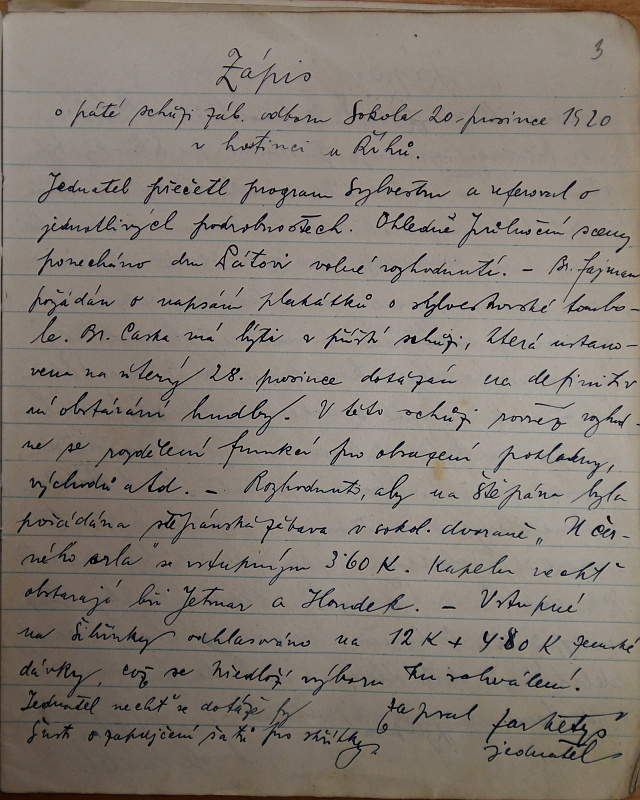 3
Zápis
o páté schůzi záb. odboru Sokola 20. prosince 1920
v hostinci u Říhů.
Jednatel přečetl program Sylvestru a referoval o
jednotlivých podrobnostech. Ohledně půlnoční sceny
ponecháno dru Pátovi volné rozhodnutí. – Br. Fajman
požádán o napsání plakátků o sylvestrovské tombo-
le. Br. Caska má býti v příští schůzi, která ustano-
vena na úterý 28. prosince dotázán na definitiv
ní obstarání hudby. V této schůzi rovněž rozhod-
ne se rozdělení funkcí pro obsazení pokladny,
východů atd. – Rozhodnuto, aby na Štěpána byla
pořádána štěpánská zábava v sokol. dvoraně „U čer-
ného orla" se vstupným 3·60 K. Kapelu nechť
obstarají bři Jetmar a Hondek. – Vstupné
na Šibřinky odhlasováno na 12 K + 4·80 K zemské
dávky, což se předloží výboru ku schválení.
Jednatel nechť se dotáže
o zapůjčení šatů pro skřítky.
Zapsal
jednatel